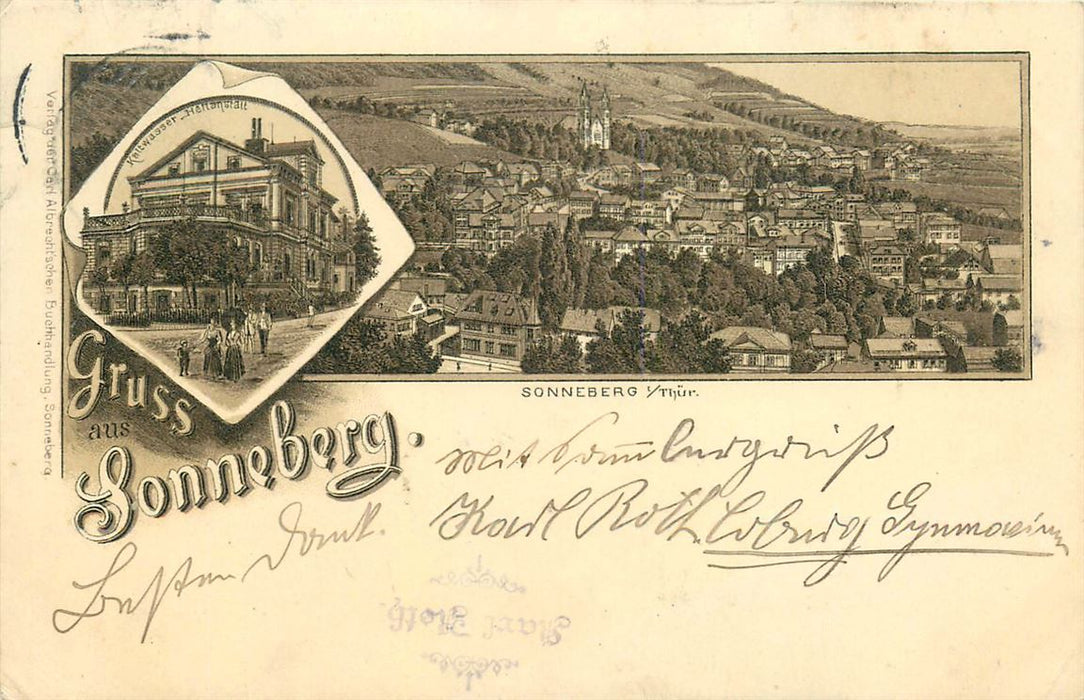 Kaltwasser-Heilanstalt
Verlag der Carl Albrecht'schen Buchhandlung, Sonneberg
Gruss
aus
Sonneberg.
SONNEBERG i/Thür.
Mit
Karl Roth. Coburg Gymnasium
Besten Dank.
Karl Roth